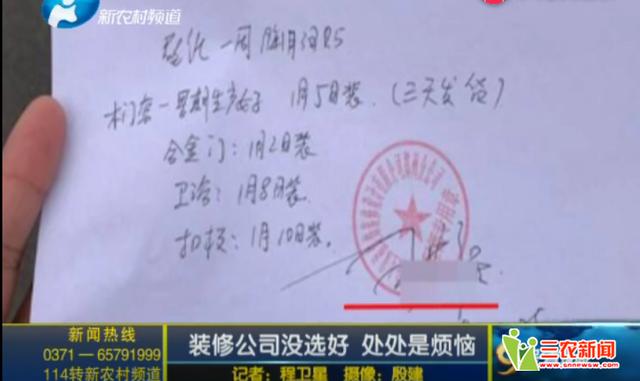 新农村频道
木门窗一星期生产好 1月5日装.(三天发货)
合金门:1月2日装
卫浴:1月8日装.
扣板:1月10日装.
新闻热线
0371—65791999
114转新农村频道
装修公司没选好 处处是烦恼
记者:程卫星 摄像:殷建
三农新闻